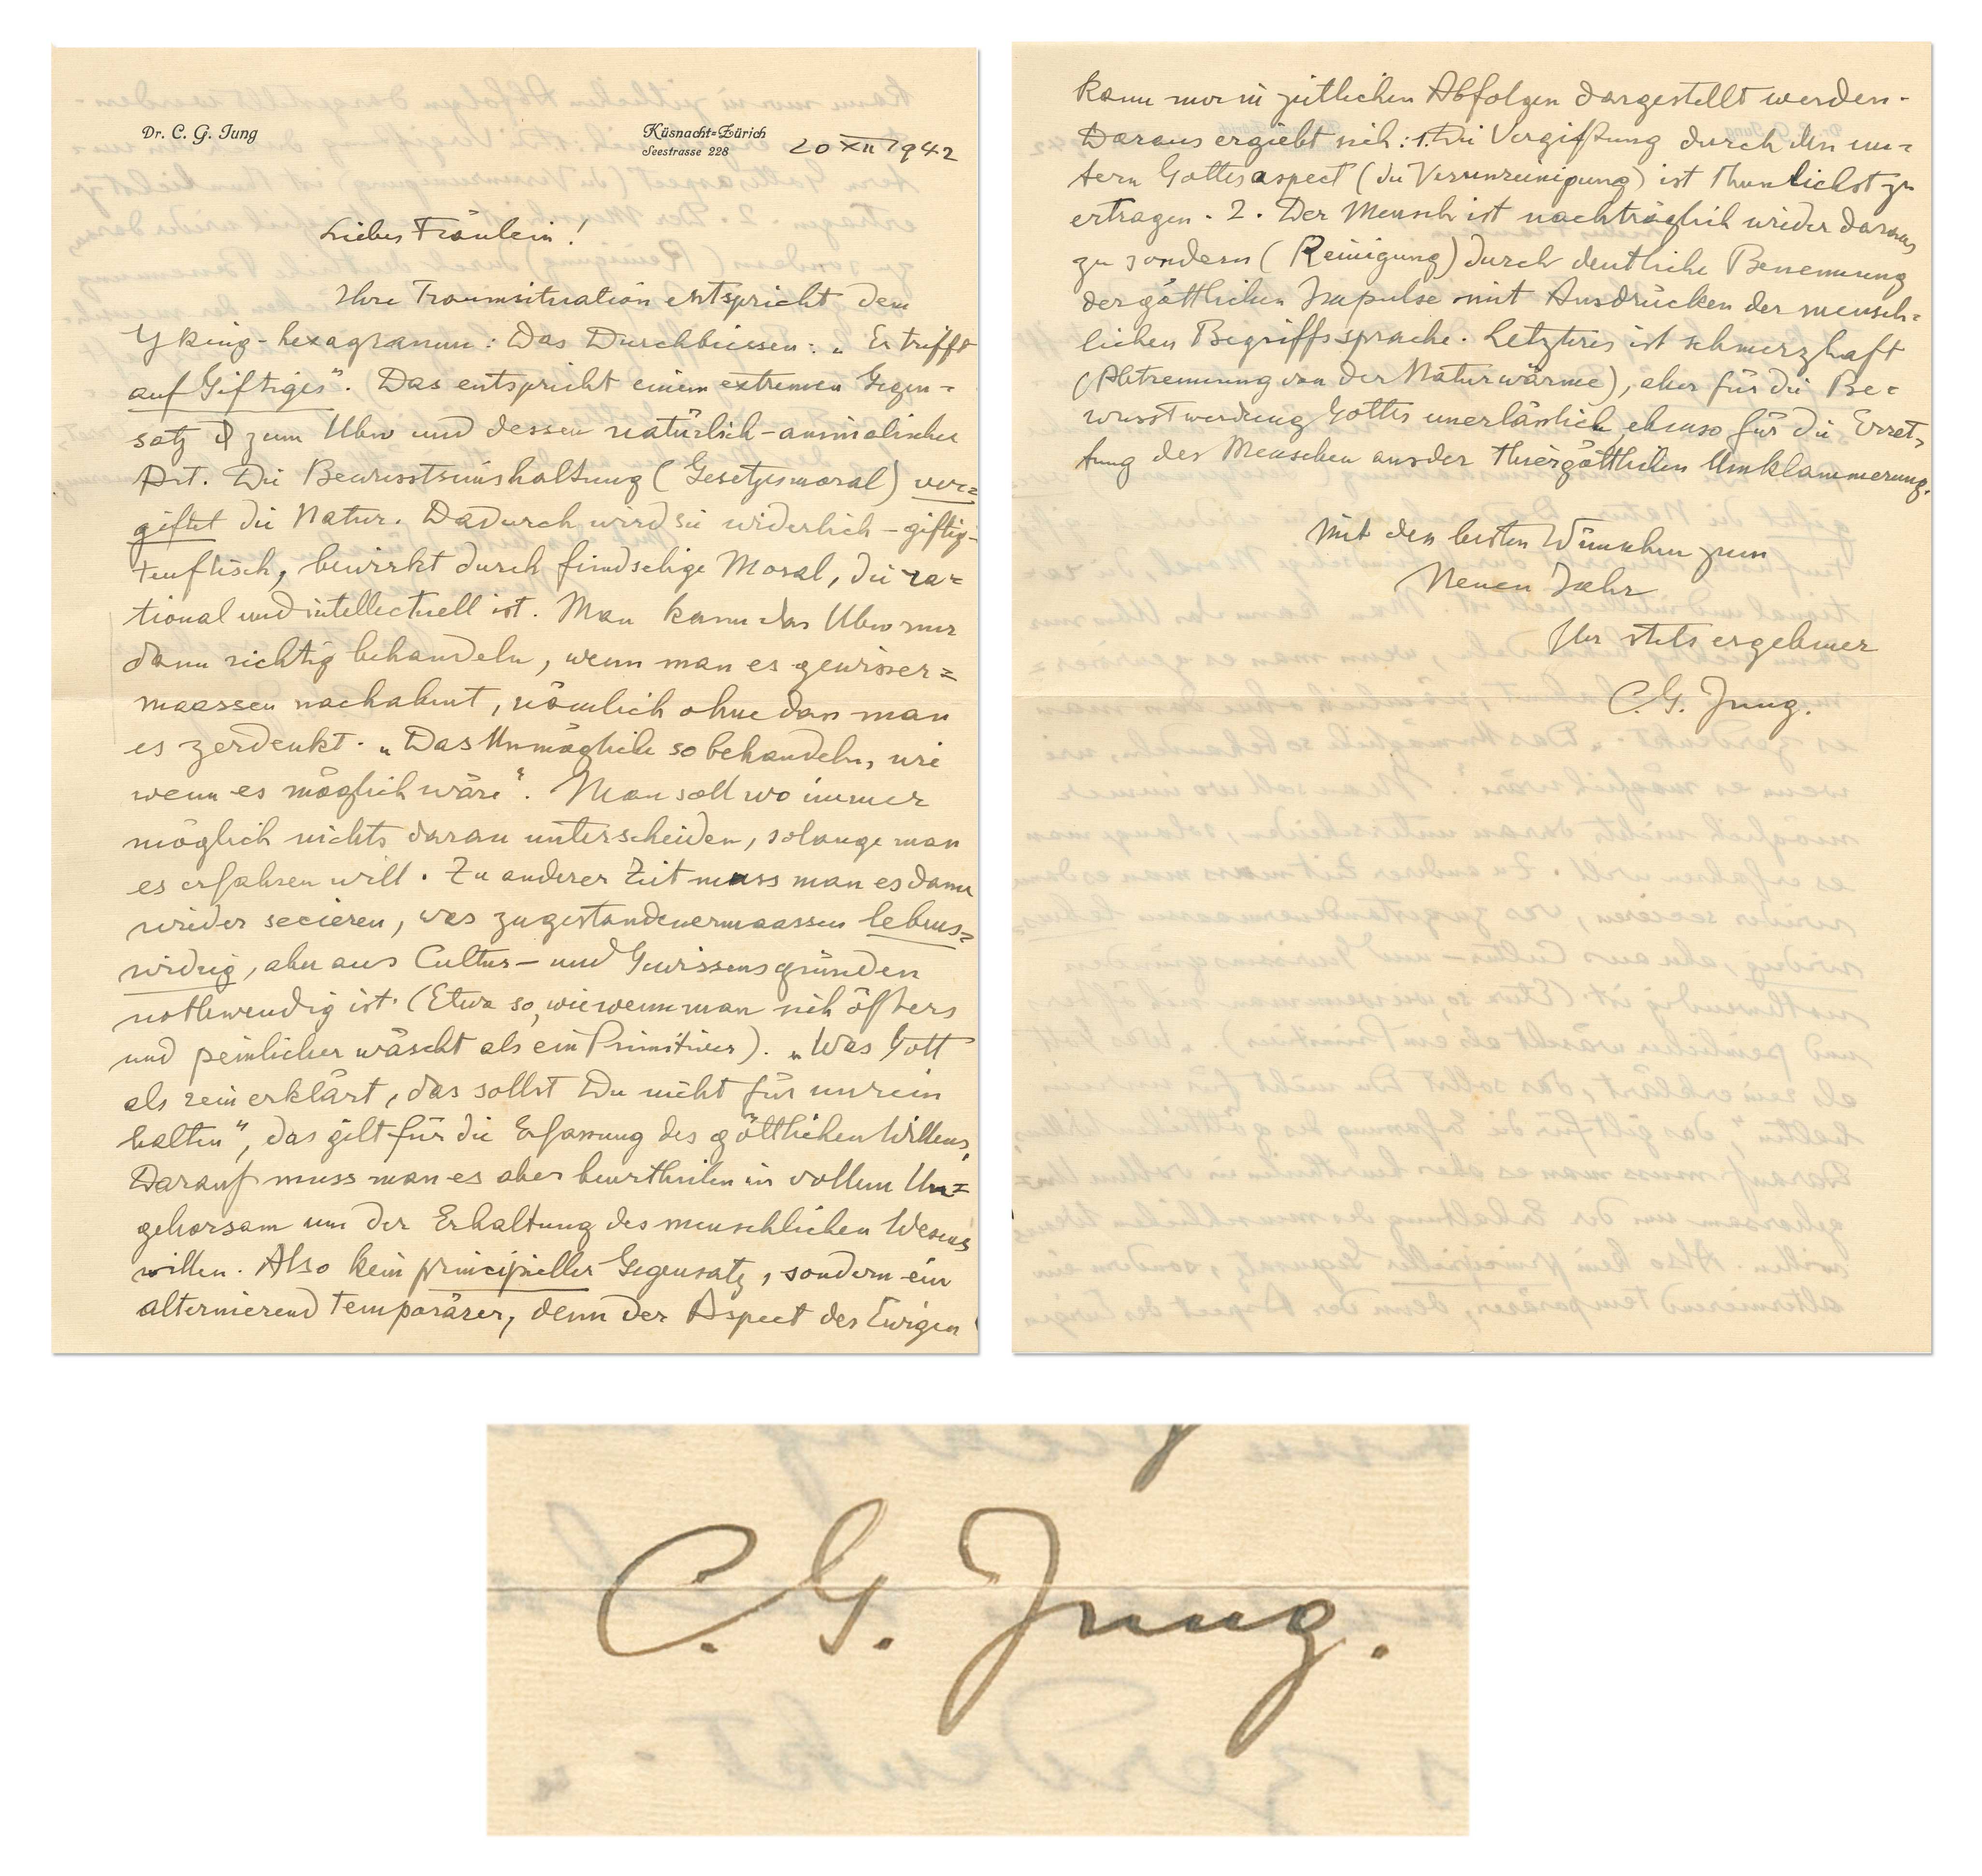 Dr. C. G. Jung
Küsnacht=Zürich
Seestrasse 228
20 XII 1942
Liebes Fräulein!
Ihre Traumsituation entspricht dem
Y King-hexagramm: Das Durchbeissen: „Er trifft
auf Giftiges". Das entspricht einem extremen Gegen=
satz zum Ubw und dessen natürlich-animalischer
Art. Die Bewusstseinshaltung (Gesetzesmoral) ver=
giftet die Natur. Dadurch wird sie widerlich-giftig-
teuflisch, bewirkt durch feindselige Moral, die ra=
tional und intellectuell ist. Man kann das Ubw nur
dann richtig behandeln, wenn man es gewisser=
maassen nachahmt, nämlich ohne dass man
es zerdenkt. „Das Unmögliche so behandeln, wie
wenn es möglich wäre". Man soll wo immer
möglich nichts daran unterscheiden, solange man
es erfahren will. Zu anderer Zeit muss man es dann
wieder secieren, was zugestandenermaassen lebens=
widrig, aber aus Cultur- und Gewissensgründen
nothwendig ist. (Etwa so, wie wenn man sich öfters
und peinlicher wäscht als ein Primitiver). „Was Gott
als rein erklärt, das sollst Du nicht für unrein
halten", das gilt für die Erfassung des göttlichen Willens,
Darauf muss man es aber beurtheilen in vollem Un=
gehorsam um der Erhaltung des menschlichen Wesens
willen. Also kein principieller Gegensatz, sondern ein
alternierend temporärer, denn der Aspect des Ewigen
kann nur in zeitlichen Abfolgen dargestellt werden.
Daraus ergiebt sich: 1. Die Vergiftung durch den un=
tern Gottesaspect (die Verunreinigung) ist thunlichst zu
ertragen. 2. Der Mensch ist nachträglich wieder daraus
zu sondern (Reinigung) durch deutliche Benennung
der göttlichen Impulse mit Ausdrücken der mensch=
lichen Begriffssprache. Letzteres ist schmerzhaft
(Abtrennung von der Naturwärme), aber für die Be=
wusstwerdung Gottes unerlässlich, ebenso für die Erret=
tung des Menschen aus der thiergöttlichen Umklammerung.
Mit den besten Wünschen zum
Neuen Jahr
Ihr stets ergebener
C. G. Jung.
C. G. Jung.